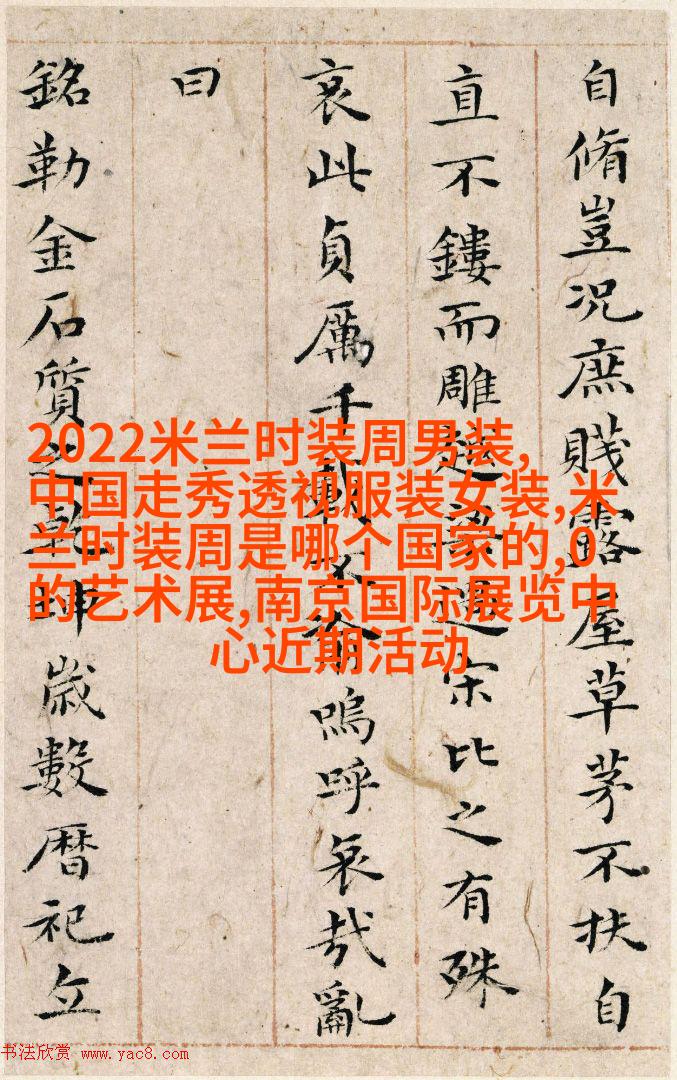 自脩豈況庶賤露屋草茅不扶自
直不鏤而雕越梁過宋比之有殊
哀此貞厲千不渝嗚呼哀哉亂
曰
銘勒金石質之乾坤歲數暦祀立
2022米兰时装周男装,
中国走秀透视服装女装,米
兰时装周是哪个国家的,0
的艺术展,南京国际展览中
心近期活动
书法欣赏 www.yac8.com